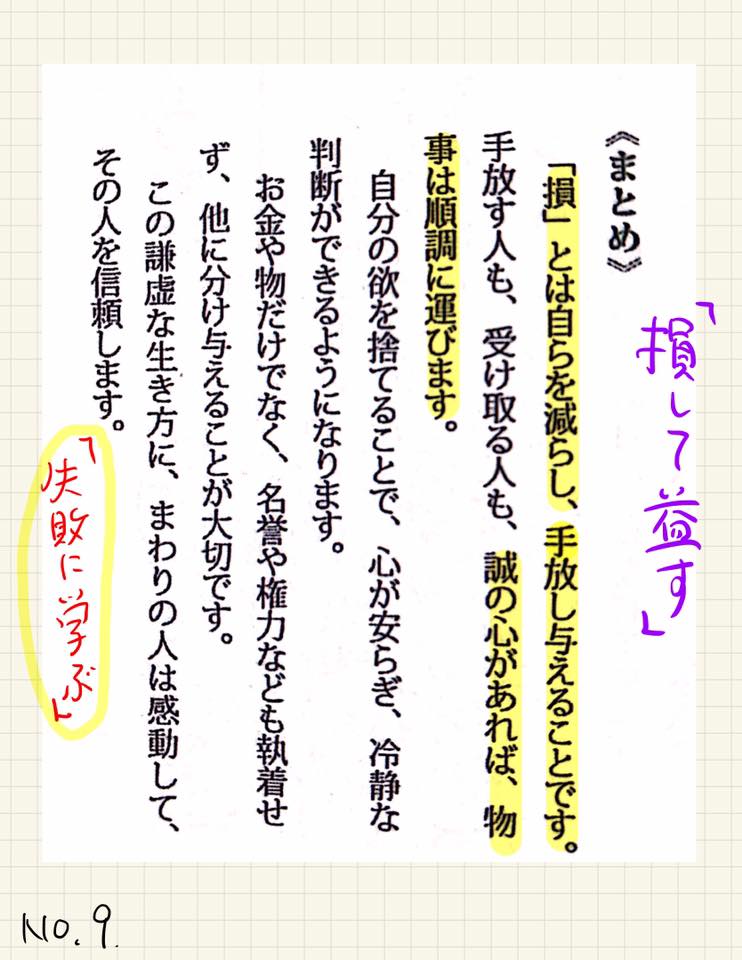 「損して益す」
《まとめ》
「損」とは自らを減らし、手放し与えることです。
手放す人も、受け取る人も、誠の心があれば、物
事は順調に運びます。
自分の欲を捨てることで、心が安らぎ、冷静な
判断ができるようになります。
お金や物だけでなく、名誉や権力なども執着せ
ず、他に分け与えることが大切です。
この謙虚な生き方に、まわりの人は感動して、
その人を信頼します。
「失敗に学ぶ」
NO.9.